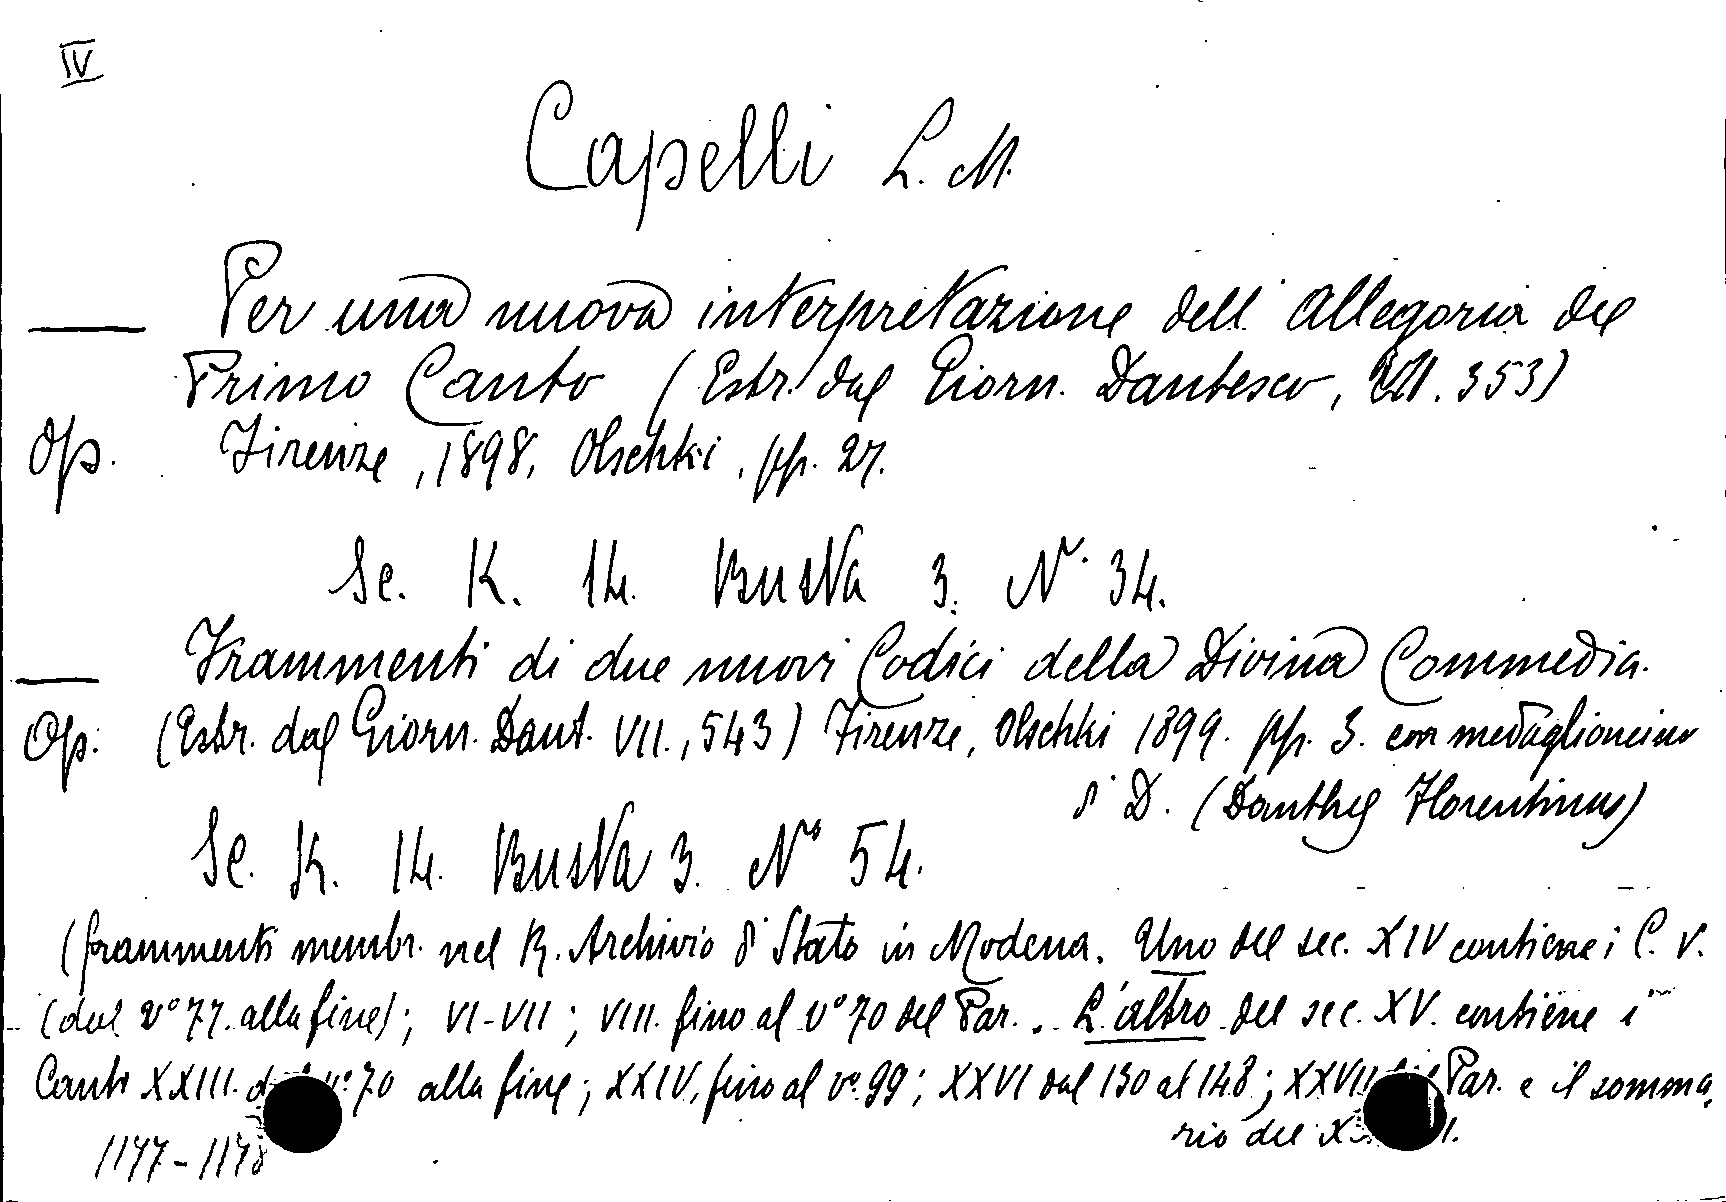 IV
Capelli L. M.
— Per una nuova interpretazione dell'allegoria del
Primo Canto (Estr. dal Giorn. Dantesco, 353)
Op. Firenze, 1898, Olschki, pp. 27.
Sc. K. 14. Busta 3. N° 34.
— Frammenti di due nuovi Codici della Divina Commedia.
Op. (Estr. dal Giorn. Dant. VII., 543) Firenze, Olschki 1899. pp. 3. con medaglioncino
d' D. (Danthes Florentinus)
Sc. K. 14. Busta 3. N° 54.
(frammenti membr. nel R. Archivio d' Stato in Modena. Uno del sec. XIV contiene i C. V.
(dal v° 77. alla fine); VI-VII; VIII. fino al v° 70 del Par.. L'altro del sec. XV. contiene i
Canti XXIII. v° 70 alla fine; XXIV, fino al v° 99; XXVI dal 130 al 148; Par. e il somma,
rio del
1177-1178